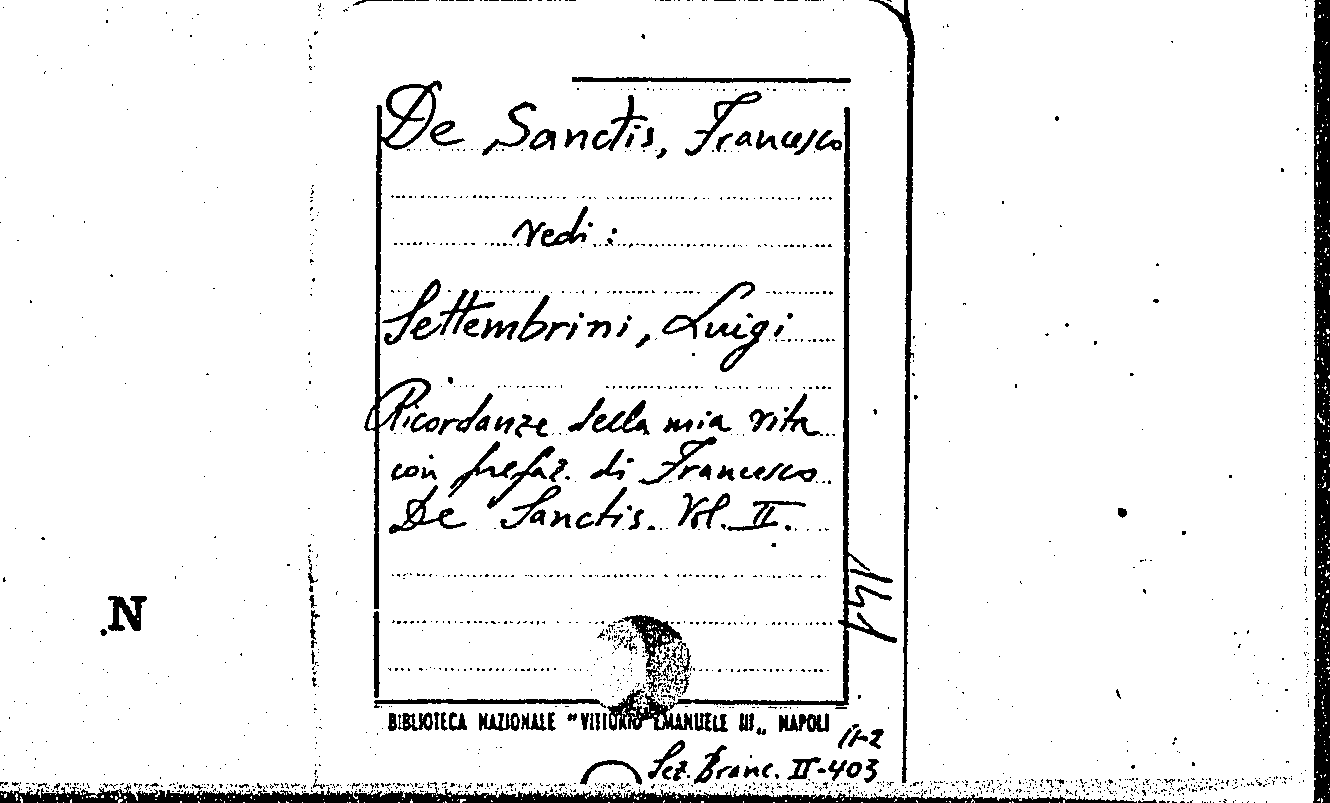 De Sanctis, Francesco
vedi :
Settembrini, Luigi
Ricordanze della mia vita
con prefaz. di Francesco
De Sanctis. Vol. II.
N
BIBLIOTECA NAZIONALE "VITTORIO EMANUELE III„ NAPOLI
11-2
Sez. Branc. II-403